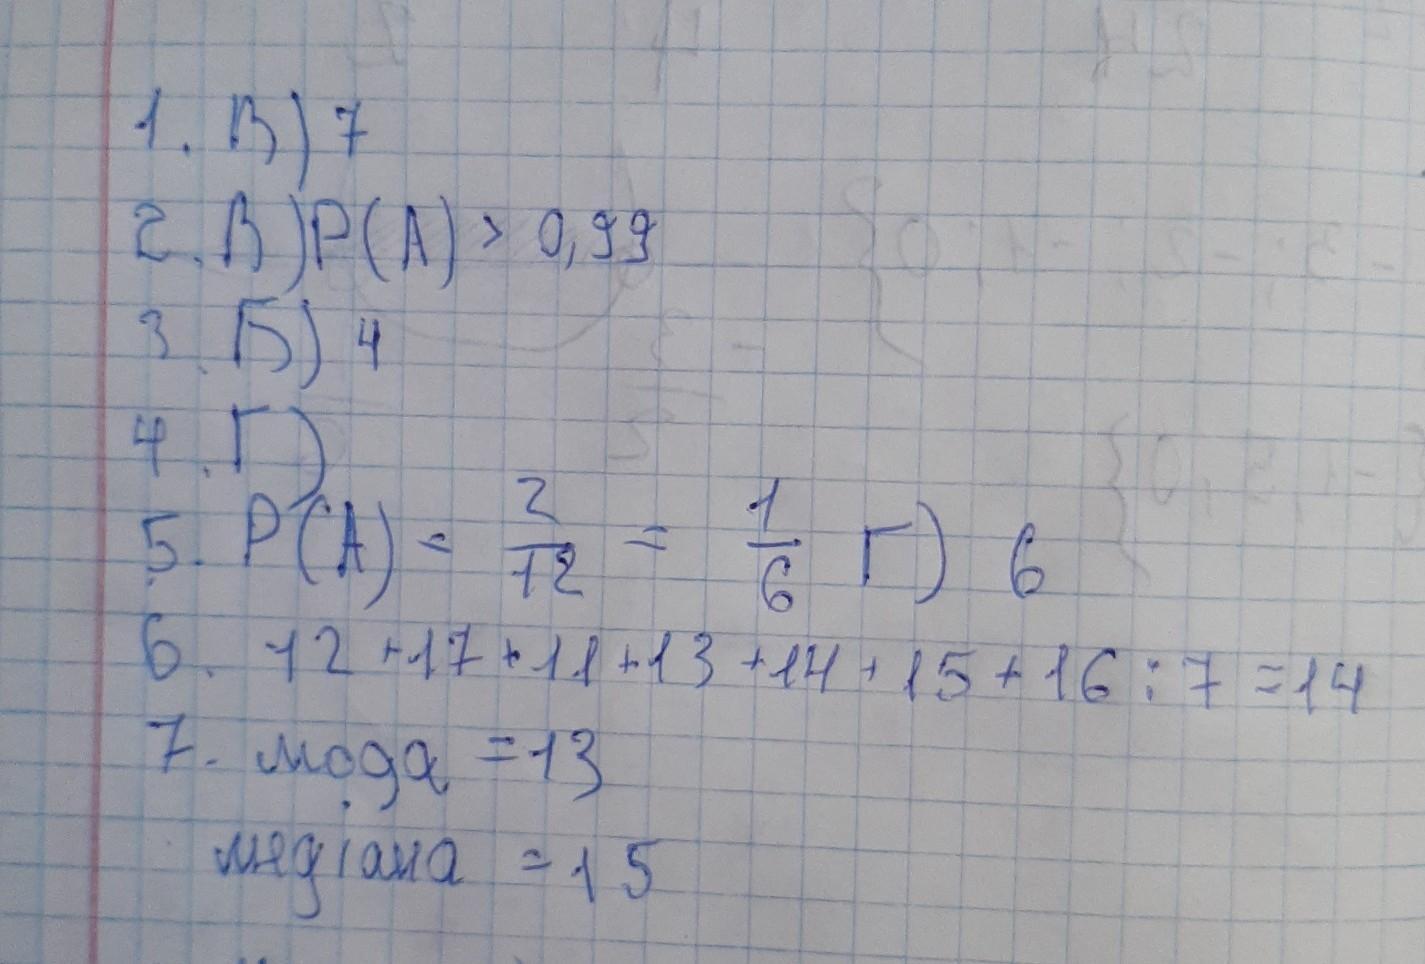 1. В) 7
2. В) P(A) > 0,99
3. Б) 4
4. Г)
5. P(A) = 2/12 = 1/6 Г) 6
6. 12 + 17 + 11 + 13 + 14 + 15 + 16 : 7 = 14
7. мода = 13
медіана = 15